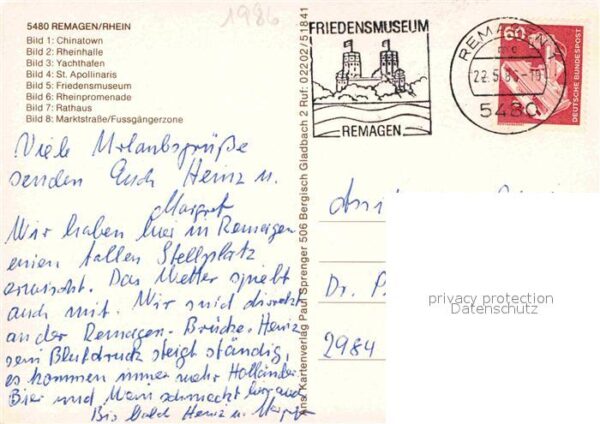 1986
5480 REMAGEN/RHEIN
Bild 1: Chinatown
Bild 2: Rheinhalle
Bild 3: Yachthafen
Bild 4: St. Apollinaris
Bild 5: Friedensmuseum
Bild 6: Rheinpromenade
Bild 7: Rathaus
Bild 8: Marktstraße/Fussgängerzone
Viele Urlaubsgrüße
senden Euch Heinz u.
Margret
Wir haben hier in Remagen
einen tollen Stellplatz
erwischt. Das Wetter spielt
auch mit. Wir sind direkt
an der Remagen-Brücke. Heinz
sein Blutdruck steigt ständig,
es kommen immer mehr Holländer
Bier und Wein schmeckt
Bis bald Heinz u. Margret
Ans.-Kartenverlag Paul Sprenger 506 Bergisch Gladbach 2 Ruf: 02202/51841
FRIEDENSMUSEUM
REMAGEN
REMAGEN
22.5.86-19
5480
60
DEUTSCHE BUNDESPOST
Dr. P
2984
privacy protection
Datenschutz